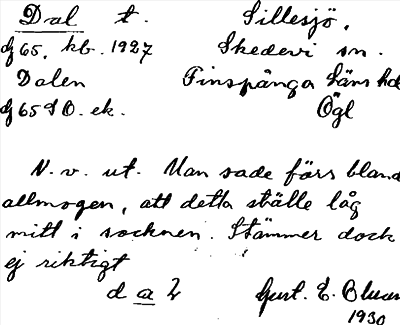 Dal t. Sillesjö,
df 65. kb. 1927 Skedevi sn.
Dalen Finspånga läns hd
df 65 SO. ek. Ögl
N. v. ut. Man sade förr bland
allmogen, att detta ställe låg
mitt i socknen. Stämmer dock
ej riktigt
d a l Gust. E. Blum
1930